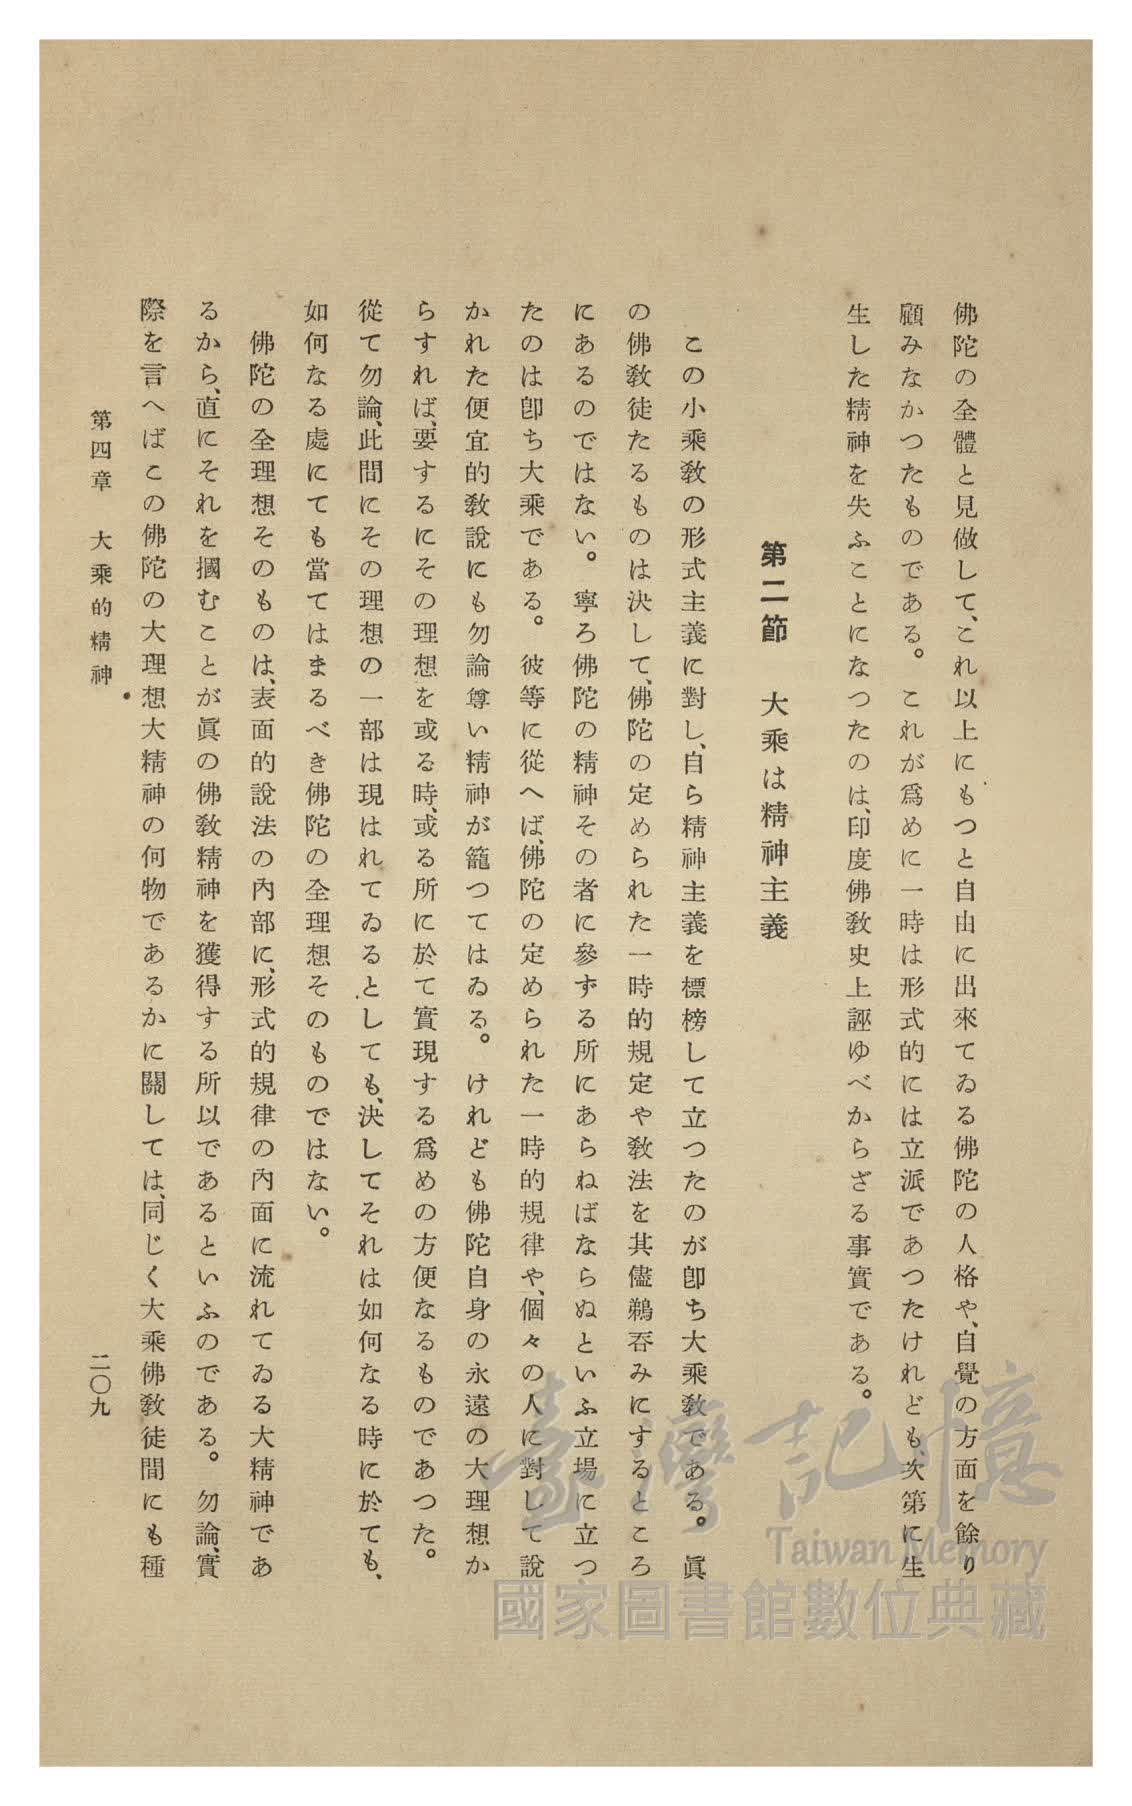 佛陀の全體と見做して、これ以上にもつと自由に出來てゐる佛陀の人格や、自覺の方面を餘り
顧みなかつたものである。これが爲めに一時は形式的には立派であつたけれども、次第に生
生した精神を失ふことになつたのは、印度佛敎史上誣ゆべからざる事實である。
第二節　大乘は精神主義
この小乘敎の形式主義に對し、自ら精神主義を標榜して立つたのが卽ち大乘敎である。眞
の佛敎徒たるものは決して、佛陀の定められた一時的規定や敎法を其儘鵜呑みにするところ
にあるのではない。寧ろ佛陀の精神その者に參ずる所にあらねばならぬといふ立場に立つ
たのは卽ち大乘である。彼等に從へば、佛陀の定められた一時的規律や、個々の人に對して說
かれた便宜的敎說にも勿論尊い精神が籠つてはゐる。けれども佛陀自身の永遠の大理想か
らすれば、要するにその理想を或る時、或る所に於て實現する爲めの方便なるものであつた。
從て勿論、此間にその理想の一部は現はれてゐるとしても、決してそれは如何なる時に於ても、
如何なる處にても當てはまるべき佛陀の全理想そのものではない。
佛陀の全理想そのものは、表面的說法の內部に、形式的規律の內面に流れてゐる大精神であ
るから、直にそれを摑むことが眞の佛敎精神を獲得する所以であるといふのである。勿論、實
際を言へばこの佛陀の大理想大精神の何物であるかに關しては、同じく大乘佛敎徒間にも種
第四章　大乘的精神　二〇九
臺灣記憶
Taiwan Memory
國家圖書館數位典藏